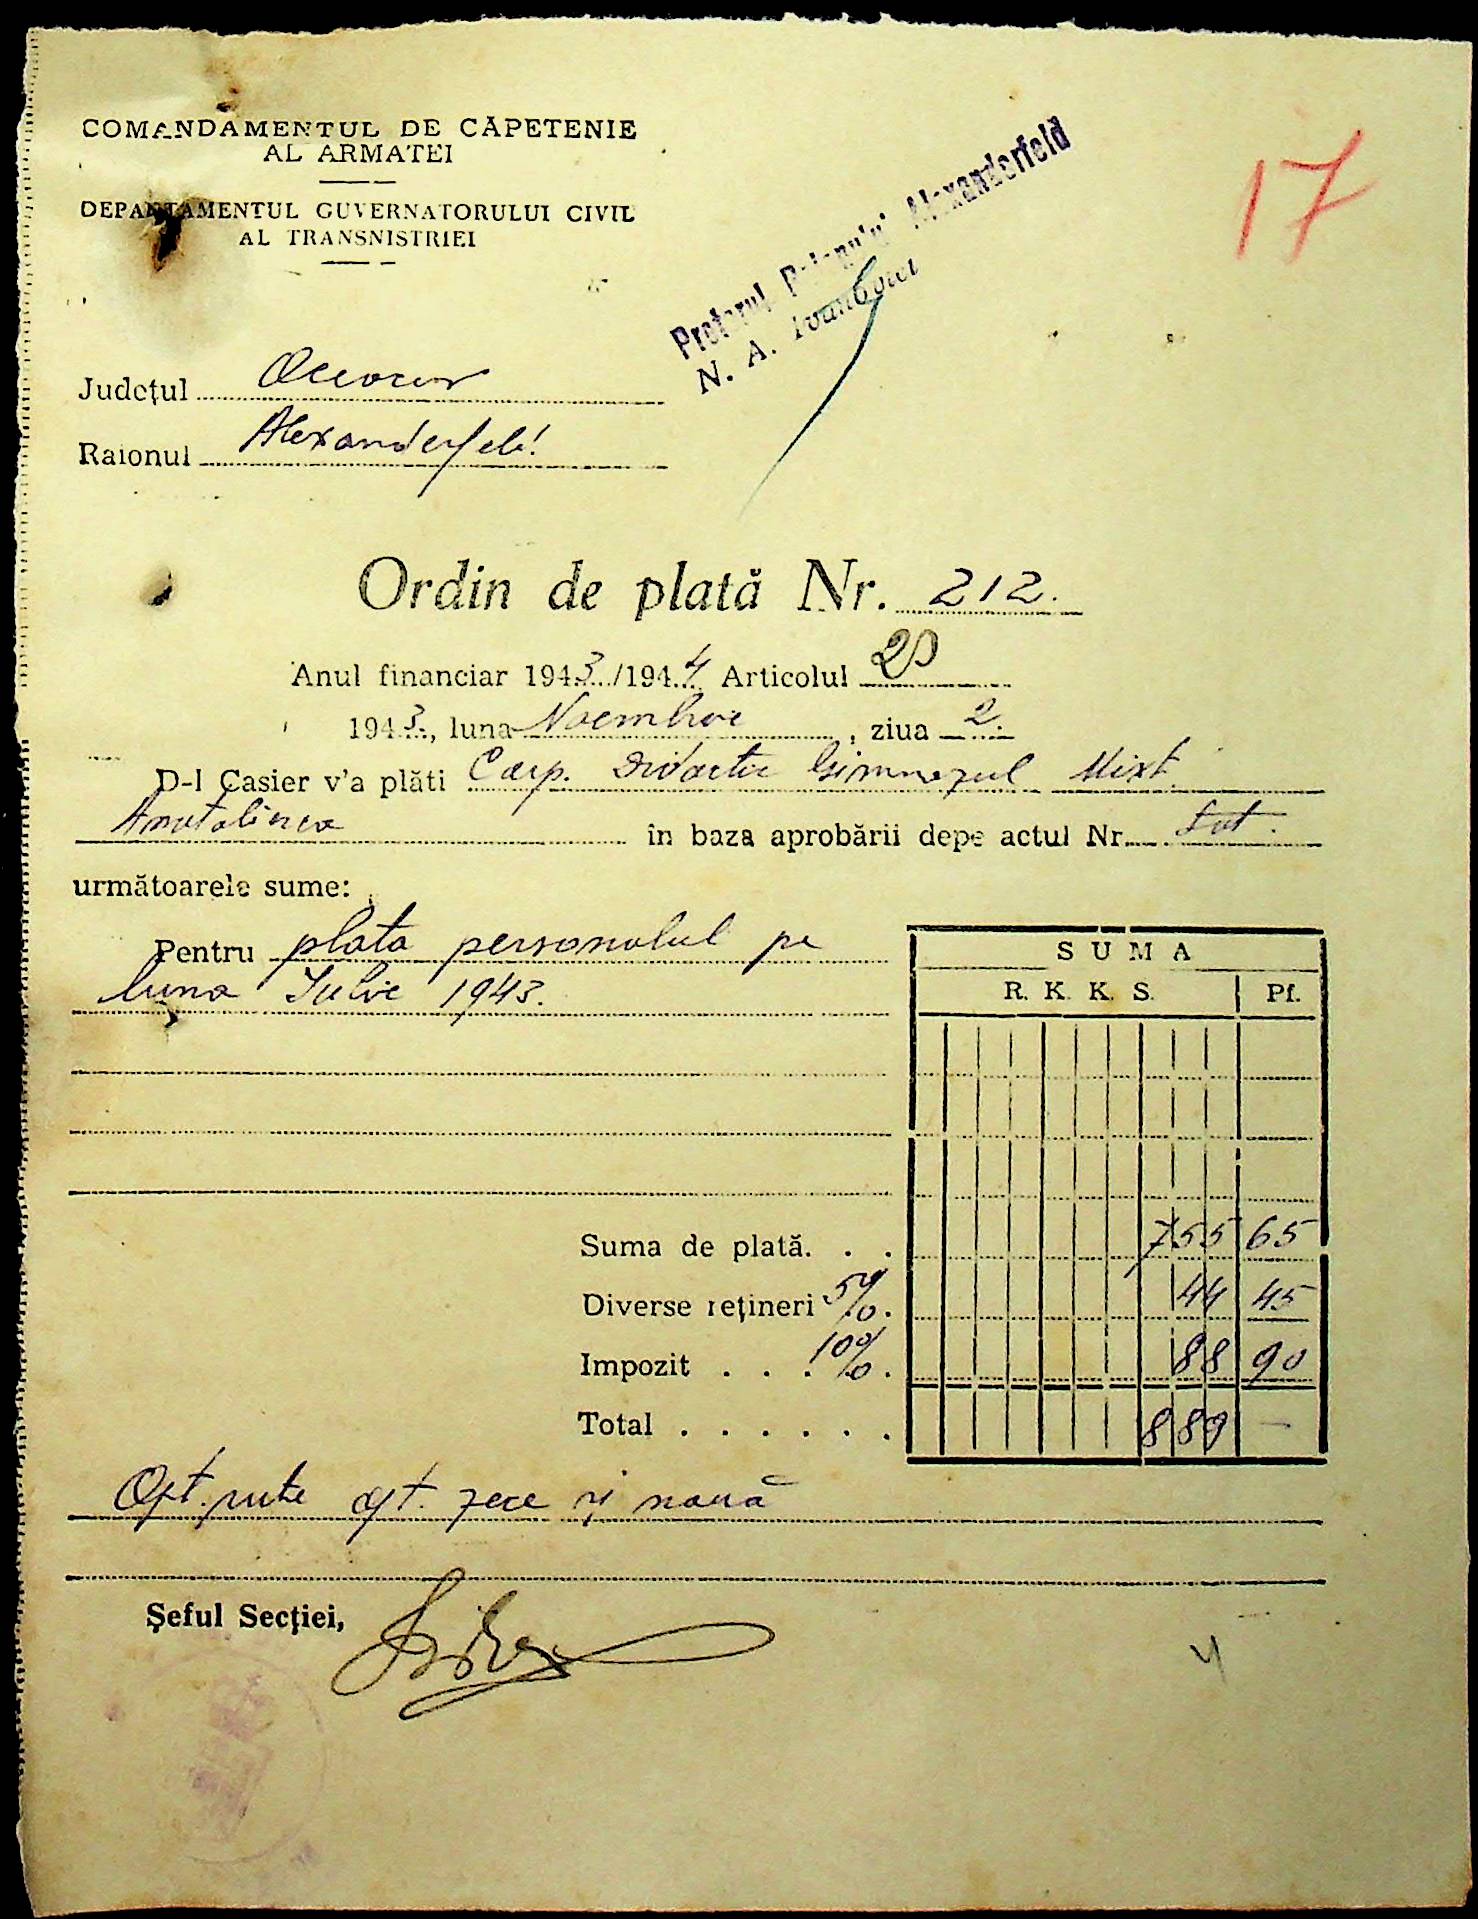 COMANDAMENTUL DE CĂPETENIE
AL ARMATEI
DEPARTAMENTUL GUVERNATORULUI CIVIL
AL TRANSNISTRIEI
17
Pretorul Raionului Alexanderfeld
N. A.
Județul
Raionul Alexanderfeld
Ordin de plată Nr. 212.
Anul financiar 1943/1944 Articolul 20
1943, luna Noembrie, ziua 2.
D-l Casier v'a plăti Corp. Didactic Gimnazul Mixt
Anatolievca în baza aprobării depe actul Nr.
următoarele sume:
Pentru plata personalul pe
luna Iulie 1943.
SUMA
R. K. K. S. Pf.
Suma de plată. . . 755 65
Diverse rețineri 5% . 44 45
Impozit . . . 10% . 88 90
Total . . . . . . 889 —
Opt. sute opt. zece și nouă
Șeful Secției,